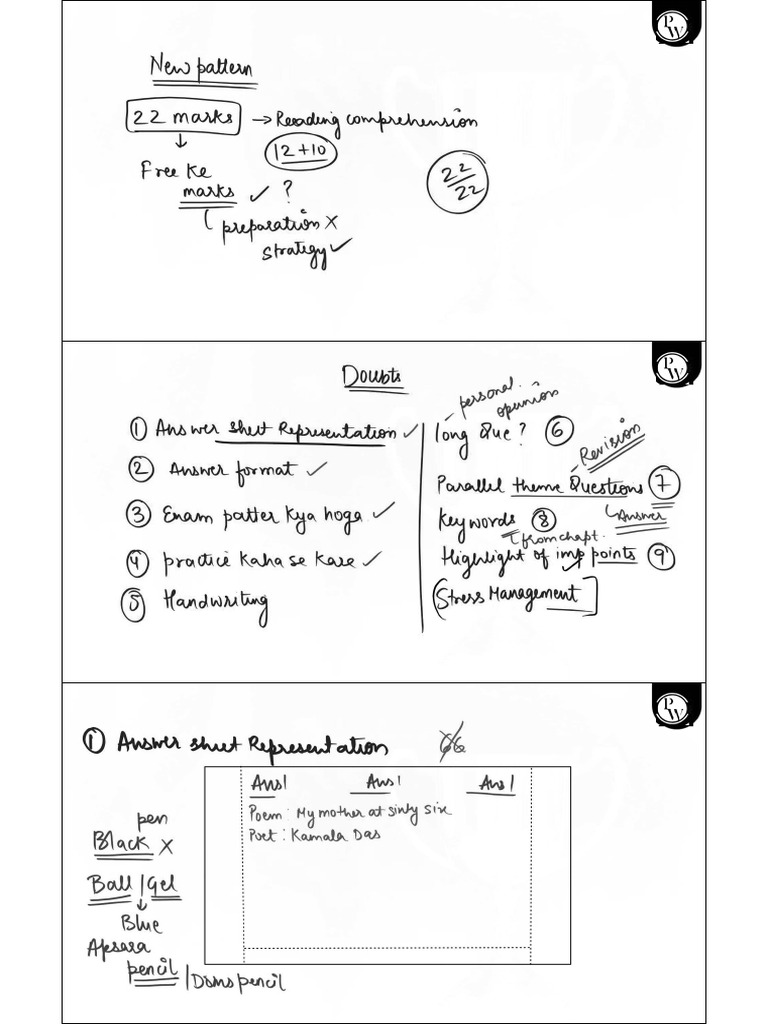 PW
New pattern
22 marks → Reading comprehension
12 + 10
22/22
Free ke
marks ✓ ?
preparation ×
strategy ✓
PW
Doubts
① Answer Sheet Representation ✓
② Answer format ✓
③ Exam patter kya hoga ✓
④ practice kaha se kare ✓
⑤ Handwriting
personal
openion
long Que? ⑥
Revision
Parallel theme Questions ⑦
Answer
Keywords ⑧
from chapt.
Highlight of imp points ⑨
Stress Management
PW
① Answer sheet Representation
66
Ans1 Ans1 Ans1
Poem : My mother at sixty six
Poet : Kamala Das
pen
Black ×
Ball / Gel
Blue
Apsara
pencil / Doms pencil